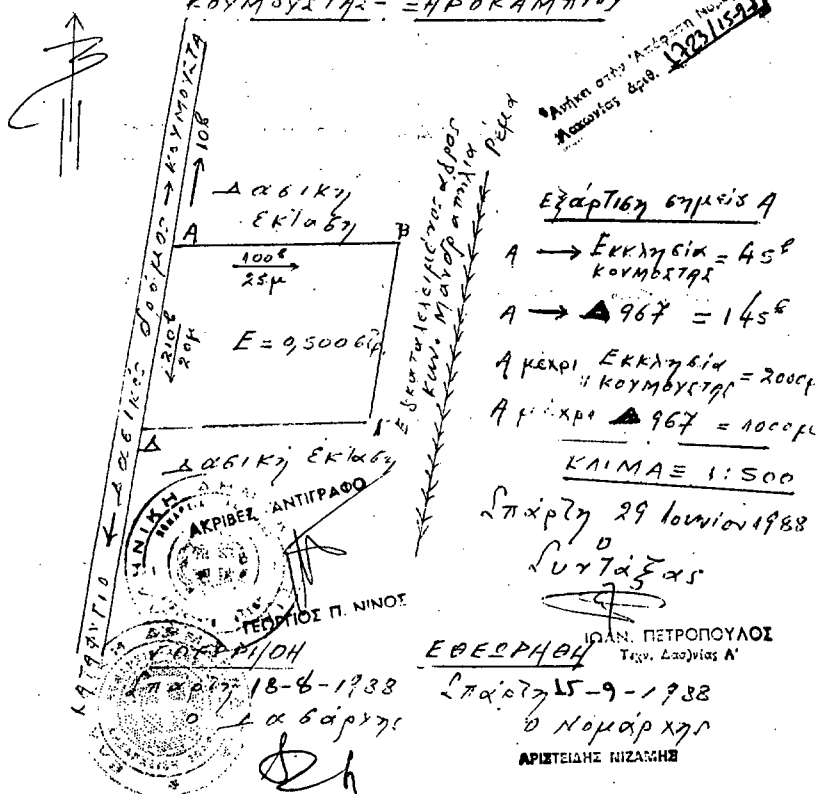 ΚΟΥΜΟΥΣΤΑΣ - ΞΗΡΟΚΑΜΠΙΟΥ
Ἀνήκει στήν Ἀπόφαση
Λακωνίας ἀριθ. 1723/15-9-
ΚΑΤΑΦΥΓΙΟ ← Δασικός δρόμος → ΚΟΥΜΟΥΣΤΑ
→ 10β
Δασική
έκταση
Α
Β
100β
25μ
210β
20μ
Ε = 0,500 στρ.
Δ
Γ
Δασική έκταση
Εγκαταλελειμένος αγρός
κων. Μανδραπήλια
Ρέμα
Εξάρτιση σημείο Α
Α → Εκκλησία = 45β
ΚΟΥΜΟΣΤΑΣ
Α → ▲ 967 = 145β
Α μέχρι Εκκλησία
ΚΟΥΜΟΥΣΤΑΣ = 2000μ
Α μέχρι ▲ 967 = 1000μ
ΚΛΙΜΑΞ 1:500
Σπάρτη 29 Ιουνίου 1988
Ο
Συντάξας
ΙΩΑΝ. ΠΕΤΡΟΠΟΥΛΟΣ
Τεχν. Δασ)νίας Α'
ΑΚΡΙΒΕΣ ΑΝΤΙΓΡΑΦΟ
ΓΕΩΡΓΙΟΣ Π. ΝΙΝΟΣ
Σπάρτη 18-8-1988
ο Δασάρχης
ΕΘΕΩΡΗΘΗ
Σπάρτη 15-9-1988
Ο Νομάρχης
ΑΡΙΣΤΕΙΔΗΣ ΝΙΖΑΜΗΣ